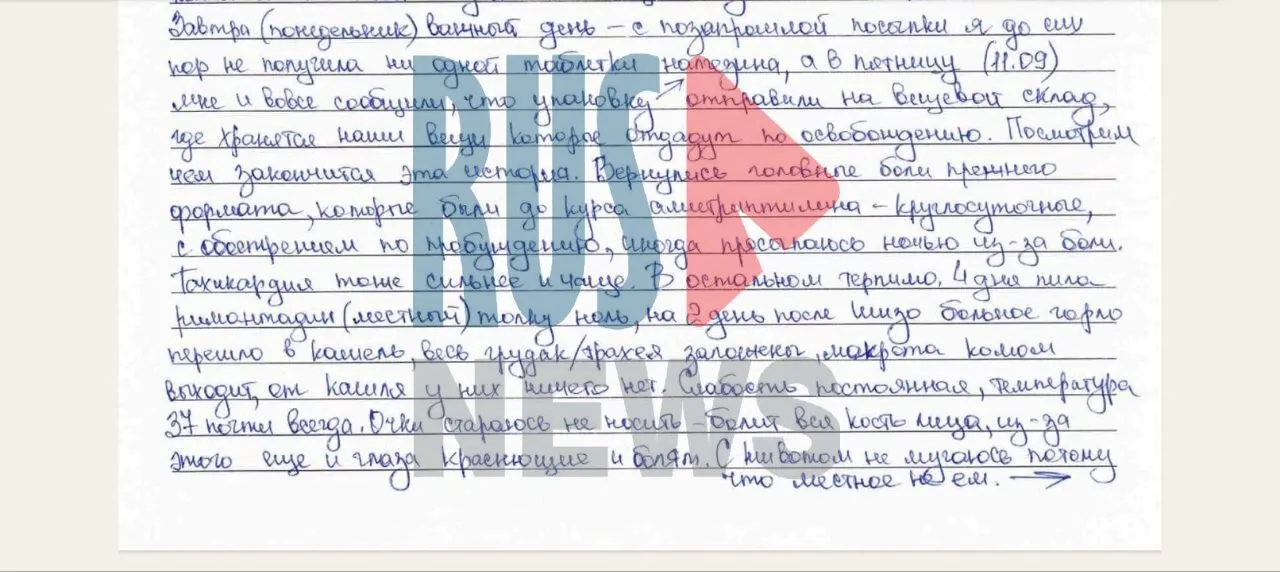 Завтра (понедельник) важный день – с позапрошлой посылки я до сих
пор не получила ни одной таблетки назина, а в пятницу (11.09)
мне и вовсе сообщили, что упаковку отправили на вещевой склад,
где хранятся наши вещи которое отдадут по освобождению. Посмотрим
чем закончится эта история. Вернулись головные боли прежнего
формата, которые были до курса амитриптилина – круглосуточные,
с обострением по пробуждению, иногда просыпаюсь ночью из-за боли.
Тахикардия тоже сильнее и чаще. В остальном терпимо. 4 дня пила
римантадин (местный) толку ноль, на 2 день после шизо больное горло
перешло в кашель, весь грудак/трахея заложены, мокрота комом
выходит, от кашля у них ничего нет. Слабость постоянная, температура
37 почти всегда. Очки стараюсь не носить – болит вся кость лица, из-за
этого еще и глаза краснющие и болят. С животом не мучаюсь потому
что местное не ем. →
RUS
NEWS